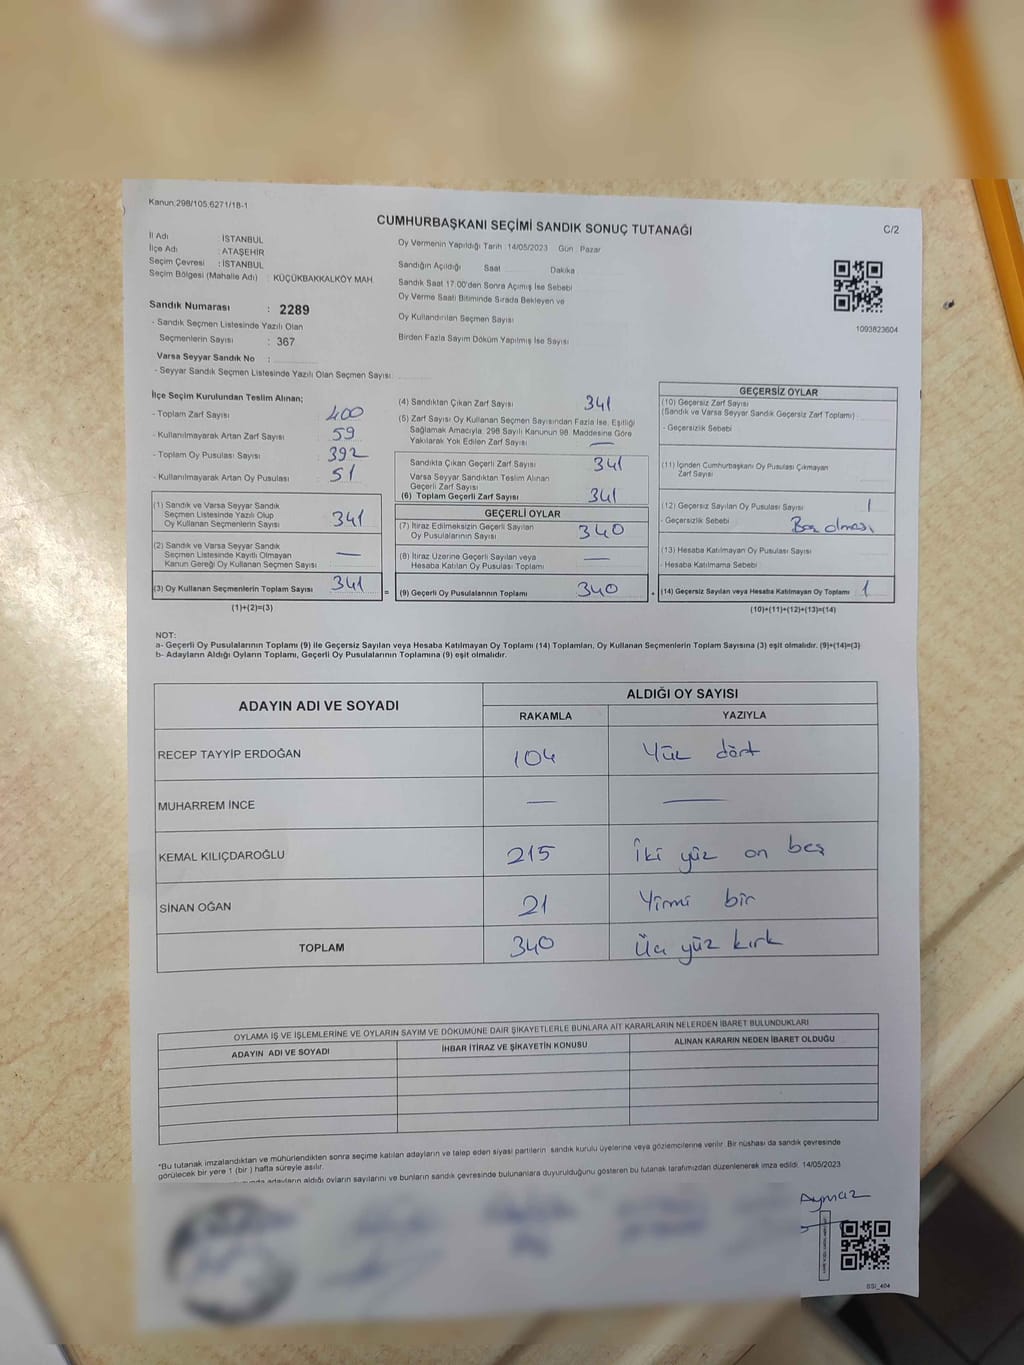 Kanun:298/105,6271/18-1
CUMHURBAŞKANI SEÇİMİ SANDIK SONUÇ TUTANAĞI
C/2
İl Adı : İSTANBUL
İlçe Adı : ATAŞEHİR
Seçim Çevresi : İSTANBUL
Seçim Bölgesi (Mahalle Adı) : KÜÇÜKBAKKALKÖY MAH.
Sandık Numarası : 2289
- Sandık Seçmen Listesinde Yazılı Olan
Seçmenlerin Sayısı : 367
Varsa Seyyar Sandık No :
- Seyyar Sandık Seçmen Listesinde Yazılı Olan Seçmen Sayısı:
Oy Vermenin Yapıldığı Tarih :14/05/2023 Gün : Pazar
Sandığın Açıldığı Saat Dakika
Sandık Saat 17.00'den Sonra Açımış İse Sebebi
Oy Verme Saati Bitiminde Sırada Bekleyen ve
Oy Kullandırılan Seçmen Sayısı
Birden Fazla Sayım Döküm Yapılmış İse Sayısı
1093823604
İlçe Seçim Kurulundan Teslim Alınan;
- Toplam Zarf Sayısı 400
- Kullanılmayarak Artan Zarf Sayısı 59
- Toplam Oy Pusulası Sayısı 392
- Kullanılmayarak Artan Oy Pusulası 51
(1) Sandık ve Varsa Seyyar Sandık
Seçmen Listesinde Yazılı Olup
Oy Kullanan Seçmenlerin Sayısı 341
(2) Sandık ve Varsa Seyyar Sandık
Seçmen Listesinde Kayıtlı Olmayan
Kanun Gereği Oy Kullanan Seçmen Sayısı —
(3) Oy Kullanan Seçmenlerin Toplam Sayısı 341 =
(1)+(2)=(3)
(4) Sandıktan Çıkan Zarf Sayısı 341
(5) Zarf Sayısı Oy Kullanan Seçmen Sayısından Fazla İse, Eşitliği
Sağlamak Amacıyla, 298 Sayılı Kanunun 98. Maddesine Göre
Yakılarak Yok Edilen Zarf Sayısı —
Sandıkta Çıkan Geçerli Zarf Sayısı 341
Varsa Seyyar Sandıktan Teslim Alınan
Geçerli Zarf Sayısı
(6) Toplam Geçerli Zarf Sayısı 341
GEÇERLİ OYLAR
(7) İtiraz Edilmeksizin Geçerli Sayılan
Oy Pusulalarının Sayısı 340
(8) İtiraz Üzerine Geçerli Sayılan veya
Hesaba Katılan Oy Pusulası Toplamı —
(9) Geçerli Oy Pusulalarının Toplamı 340
GEÇERSİZ OYLAR
(10) Geçersiz Zarf Sayısı
(Sandık ve Varsa Seyyar Sandık Geçersiz Zarf Toplamı)
- Geçersizlik Sebebi
(11) İçinden Cumhurbaşkanı Oy Pusulası Çıkmayan
Zarf Sayısı
(12) Geçersiz Sayılan Oy Pusulası Sayısı 1
- Geçersizlik Sebebi Boş olması
(13) Hesaba Katılmayan Oy Pusulası Sayısı
- Hesaba Katılmama Sebebi
(14) Geçersiz Sayılan veya Hesaba Katılmayan Oy Toplamı 1
(10)+(11)+(12)+(13)=(14)
NOT:
a- Geçerli Oy Pusulalarının Toplamı (9) ile Geçersiz Sayılan veya Hesaba Katılmayan Oy Toplamı (14) Toplamları, Oy Kullanan Seçmenlerin Toplam Sayısına (3) eşit olmalıdır. (9)+(14)=(3)
b- Adayların Aldığı Oyların Toplamı, Geçerli Oy Pusulalarının Toplamına (9) eşit olmalıdır.
ADAYIN ADI VE SOYADI
ALDIĞI OY SAYISI
RAKAMLA YAZIYLA
RECEP TAYYİP ERDOĞAN 104 Yüz dört
MUHARREM İNCE — —
KEMAL KILIÇDAROĞLU 215 İki yüz on beş
SİNAN OĞAN 21 Yirmi bir
TOPLAM 340 Üç yüz kırk
OYLAMA İŞ VE İŞLEMLERİNE VE OYLARIN SAYIM VE DÖKÜMÜNE DAİR ŞİKAYETLERLE BUNLARA AİT KARARLARIN NELERDEN İBARET BULUNDUKLARI
ADAYIN ADI VE SOYADI İHBAR İTİRAZ VE ŞİKAYETİN KONUSU ALINAN KARARIN NEDEN İBARET OLDUĞU
*Bu tutanak imzalandıktan ve mühürlendikten sonra seçime katılan adayların ve talep eden siyasi partilerin sandık kurulu üyelerine veya gözlemcilerine verilir. Bir nüshası da sandık çevresinde
görülecek bir yere 1 (bir) hafta süreyle asılır.
adayların aldığı oyların sayılarını ve bunların sandık çevresinde bulunanlara duyurulduğunu gösteren bu tutanak tarafımızdan düzenlenerek imza edildi. 14/05/2023
Aymaz
SSİ_404